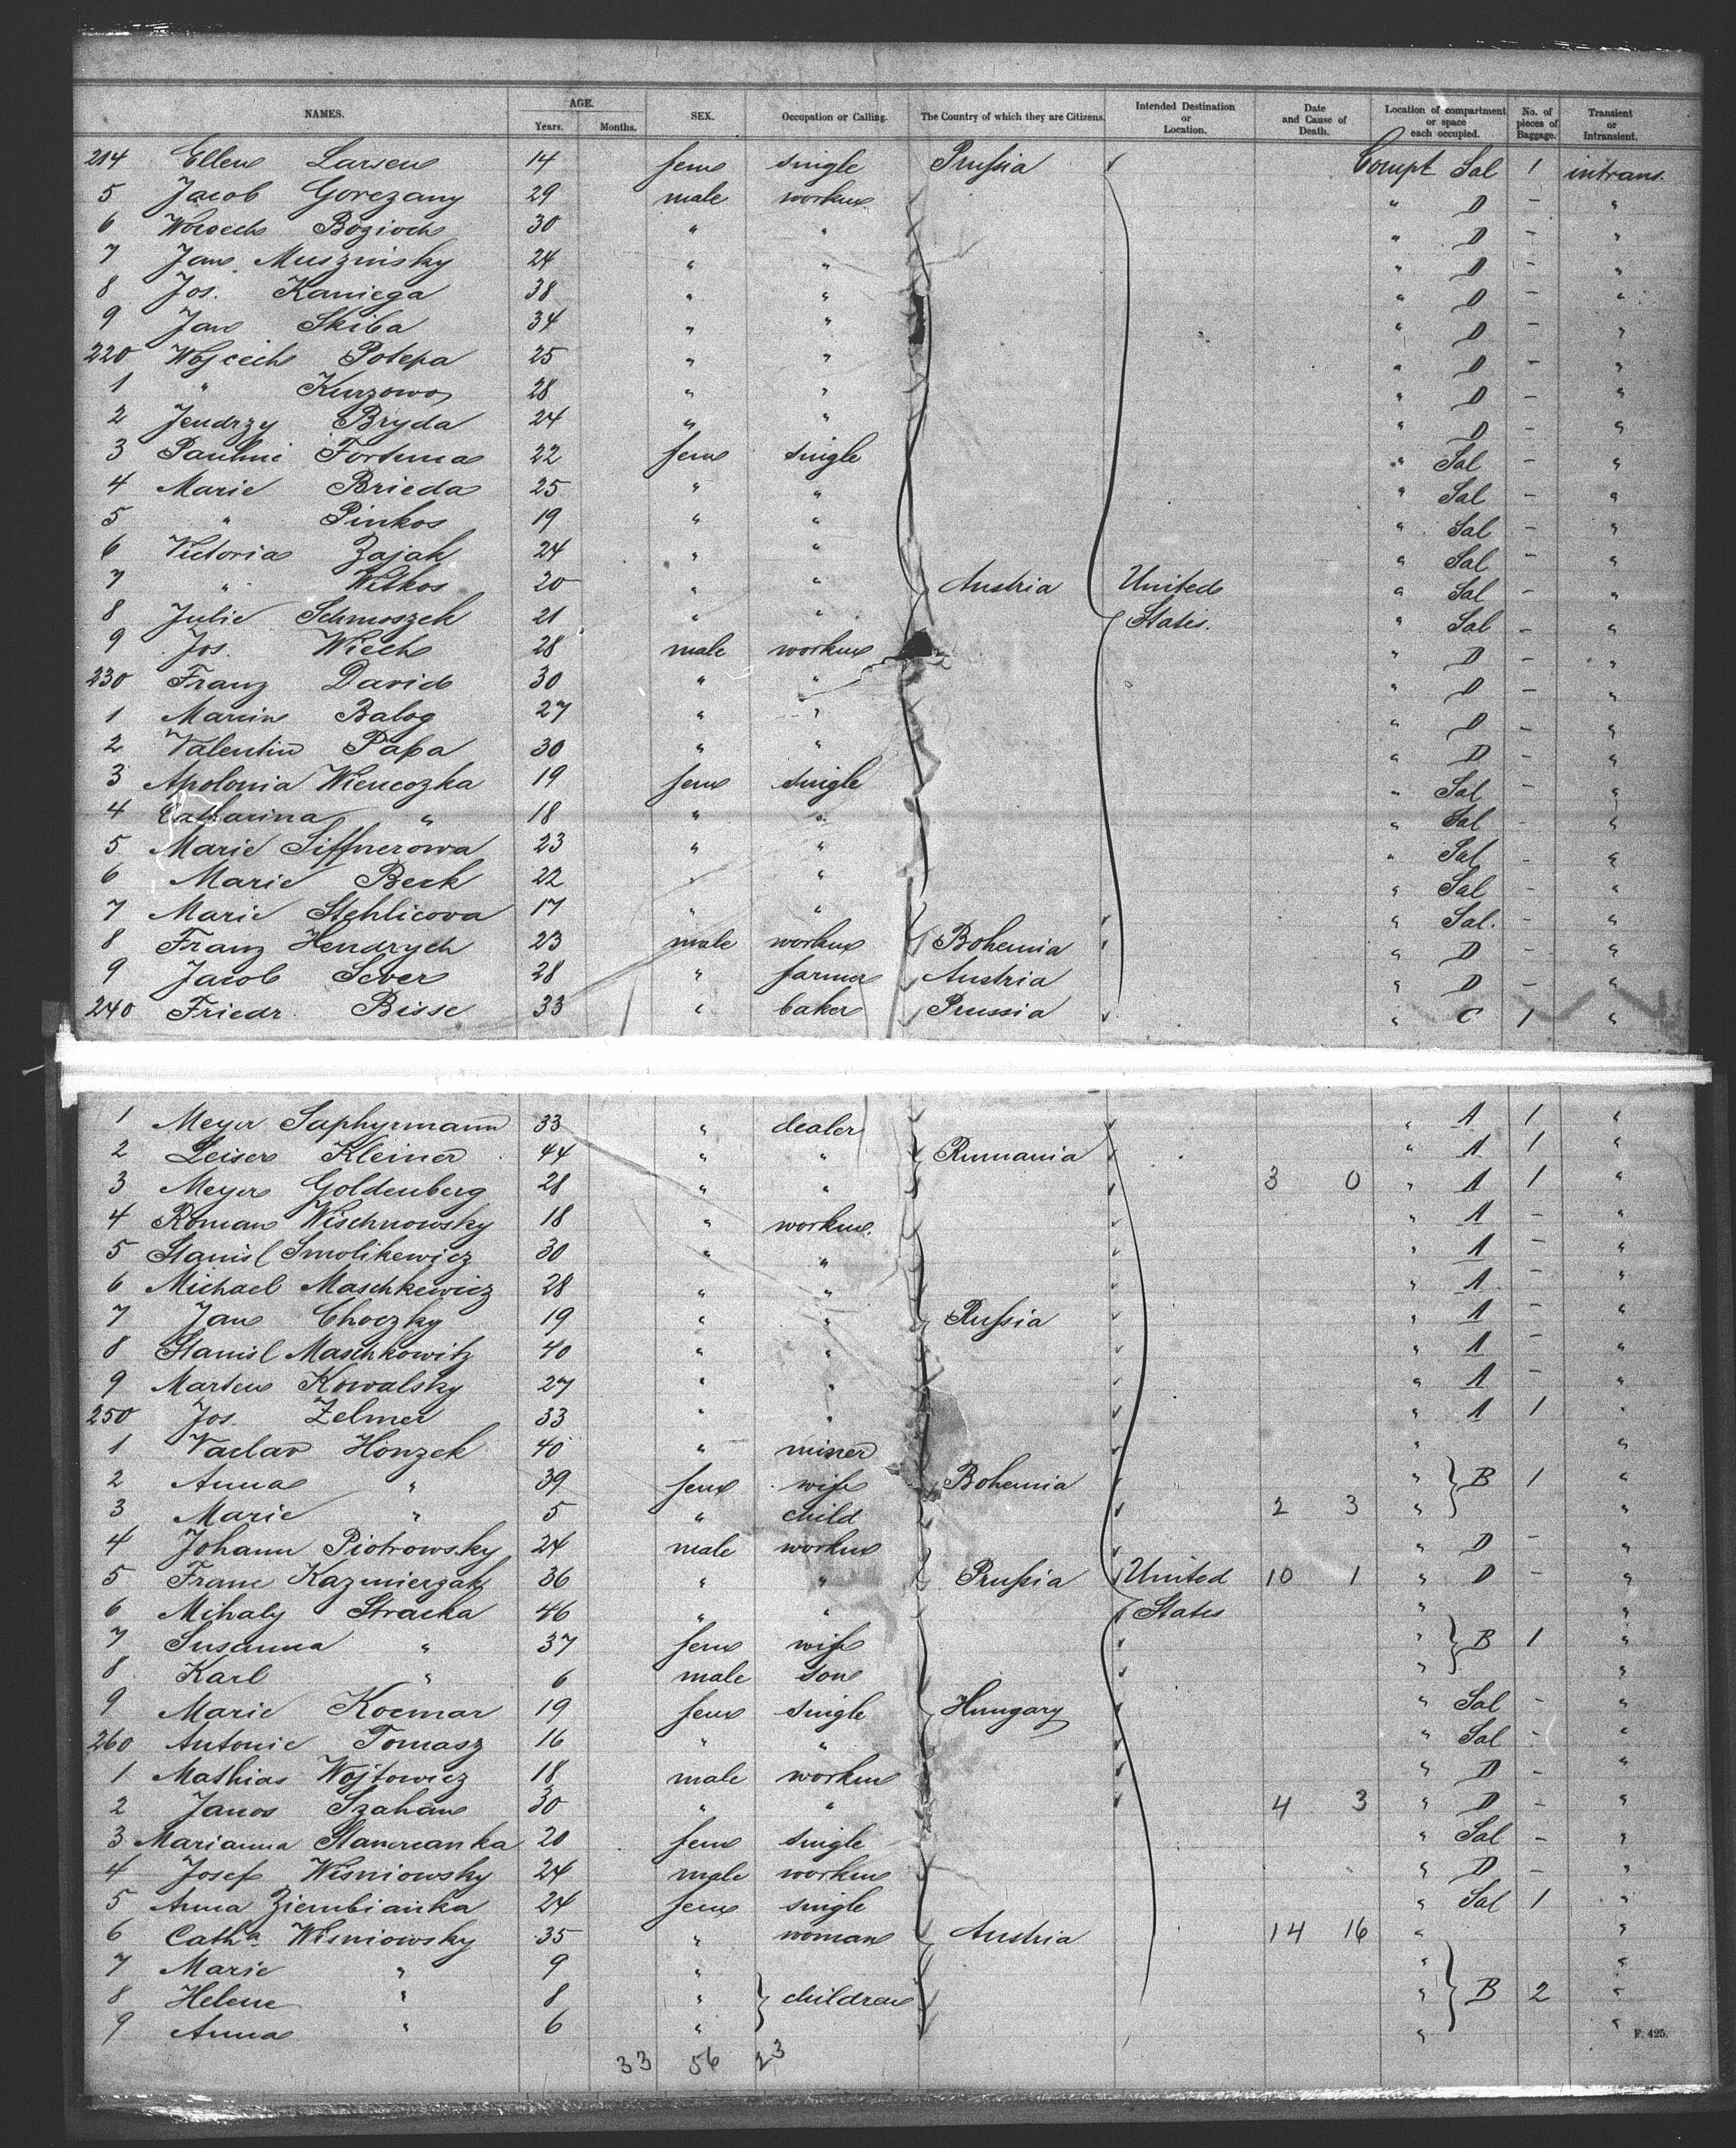 NAMES. AGE. Years. Months. SEX. Occupation or Calling. The Country of which they are Citizens. Intended Destination or Location. Date and Cause of Death. Location of compartment or space each occupied. No. of pieces of Baggage. Transient or Intransient.
214 Ellen Larsen 14 fem single Prussia Compt Sal 1 intrans.
5 Jacob Gorczany 29 male workm " D - "
6 30 " " " D - "
7 Jan Muszinsky 24 " " " D - "
8 Jos. Kaniega 38 " " " D - "
9 Jan Skiba 34 " " " D - "
220 Wojciech Potepa 25 " " " D - "
1 " 28 " " " D - "
2 Jendrzy Bryda 24 " " " D - "
3 Pauline Fortuna 22 fem single " Sal - "
4 Marie Brieda 25 " " " Sal - "
5 " Pinkos 19 " " " Sal - "
6 Victoria Zajak 24 " " " Sal - "
7 " Witkos 20 " " Austria United " Sal - "
8 Julie 21 " " States. " Sal - "
9 Jos. Wiech 28 male workm " D - "
230 Franz David 30 " " " D - "
1 Marcin Balog 27 " " " D - "
2 Valentin Papa 30 " " " D - "
3 Apolonia Wiencozka 19 fem single " Sal - "
4 Catharina " 18 " " " Sal - "
5 Marie Siffnerowa 23 " " " Sal - "
6 Marie Beck 22 " " " Sal - "
7 Marie Stehlicova 17 " " " Sal. - "
8 Franz Hendrych 23 male workm Bohemia " D - "
9 Jacob Sever 28 " farmer Austria " D - "
240 Friedr. Bisse 33 " baker Prussia " C 1 "
1 Meyer Saphyrmann 33 " dealer " A 1 "
2 Leiser Kleiner 44 " " Rumania " A 1 "
3 Meyer Goldenberg 28 " " 3 0 " A 1 "
4 Roman Wischnowsky 18 " workm. " A - "
5 Stanisl Smolikewicz 30 " " " A - "
6 Michael Maschkewicz 28 " " " A - "
7 Jan Choczky 19 " " Russia " A - "
8 Stanisl Maschkowitz 40 " " " A - "
9 Marten Kowalsky 27 " " " A - "
250 Jos. Zelmer 33 " " " A 1 "
1 Vaclav Honzek 40 " miner " "
2 Anna " 39 fem wife Bohemia " B 1 "
3 Marie " 5 " child 2 3 " "
4 Johann Piotrowsky 24 male workm " D - "
5 Franc Kazmierzak 36 " " Prussia United 10 1 " D - "
6 Mihaly Stracka 46 " " States " "
7 Susanna " 37 fem wife " B 1 "
8 Karl " 6 male son " "
9 Marie Kocmar 19 fem single Hungary " Sal - "
260 Antonie Tomasz 16 " " " Sal - "
1 Mathias Wojtowicz 18 male workm " D - "
2 Janos Szahan 30 " " 4 3 " D - "
3 Marianna 20 fem single " Sal - "
4 Josef Wisniowsky 24 male workm " D - "
5 Anna Ziembianka 24 fem single " Sal 1 "
6 Catha Wisniowsky 35 " woman Austria 14 16 " "
7 Marie " 9 " " "
8 Helene " 8 " children " B 2 "
9 Anna " 6 " " "
F. 425.
33 56 23